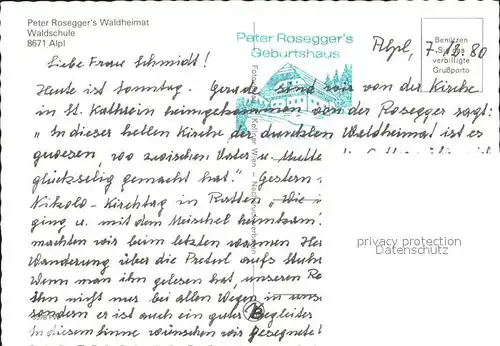 Peter Rosegger's Waldheimat
Waldschule
8671 Alpl
Peter Rosegger's
Geburtshaus
Benützen
Sie die
verbilligte
Grußporto
Alpl, 7.12.80
Liebe Frau Schmidt!
Heute ist Sonntag. Gerade sind wir von der Kirche
in St. Kathrein heimgekommen von der Rosegger sagt:
"In dieser hellen Kirche der dunklen Waldheimat ist es
gewesen, wo zwischen Vater u. Mutte
glückselig gemacht hat." Gestern
Nikolo-Kirchtag in Ratten "Wie i
ging u. mit dem Meischel heimkam".
machten wir beim letzten warmen Her
Wanderung über die Pretul aufs Stuhl
Wenn man ihn gelesen hat, unseren Ro
ihn nicht nur bei allen Wegen in uns
sondern er ist auch ein guter Begleiter
In diesem Sinne wünschen wir gesegnete
privacy protection
Datenschutz